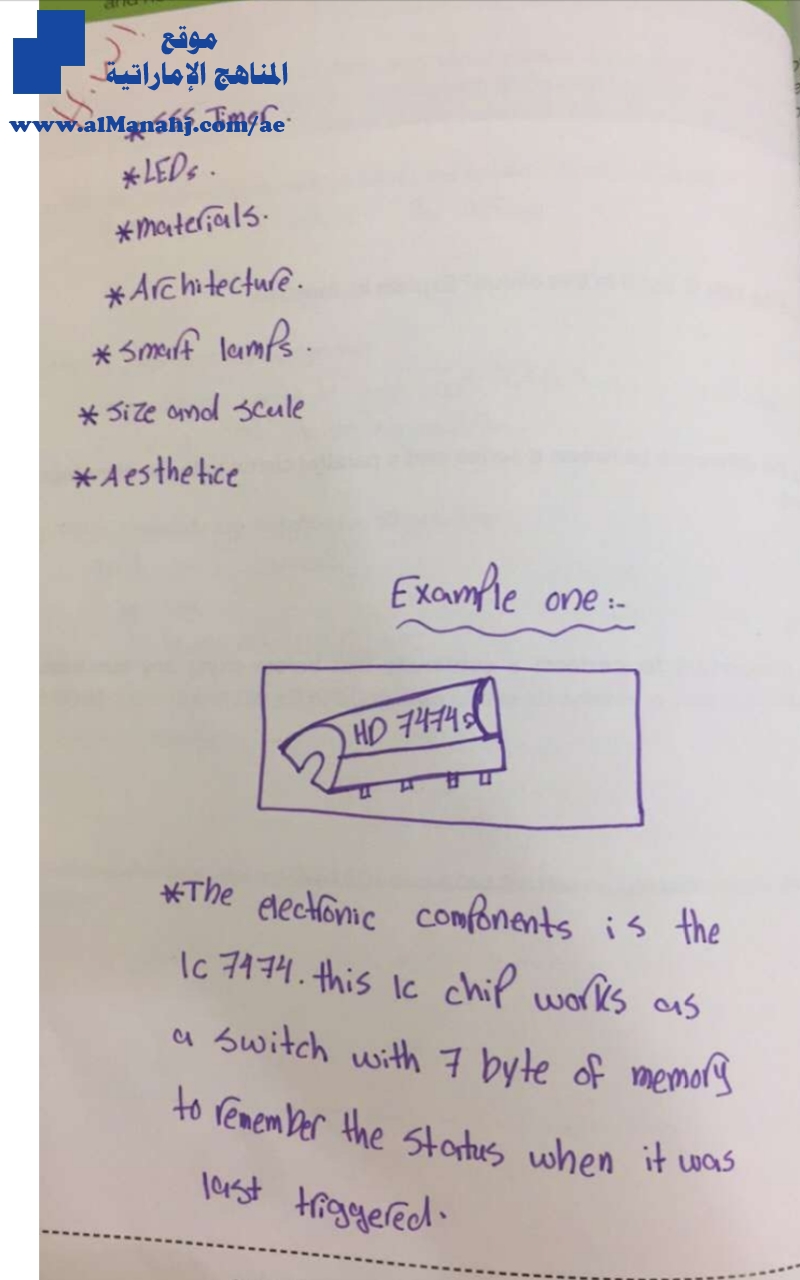 موقع
المناهج الإماراتية
www.alManahj.com/ae
* 555 Timer.
* LEDs.
* materials.
* Architecture.
* smart lamps.
* size and scale
* Aesthetice
Example one :-
HD 7474s
* The electronic components is the
Ic 7474. this Ic chip works as
a switch with 7 byte of memory
to remember the status when it was
last triggered.